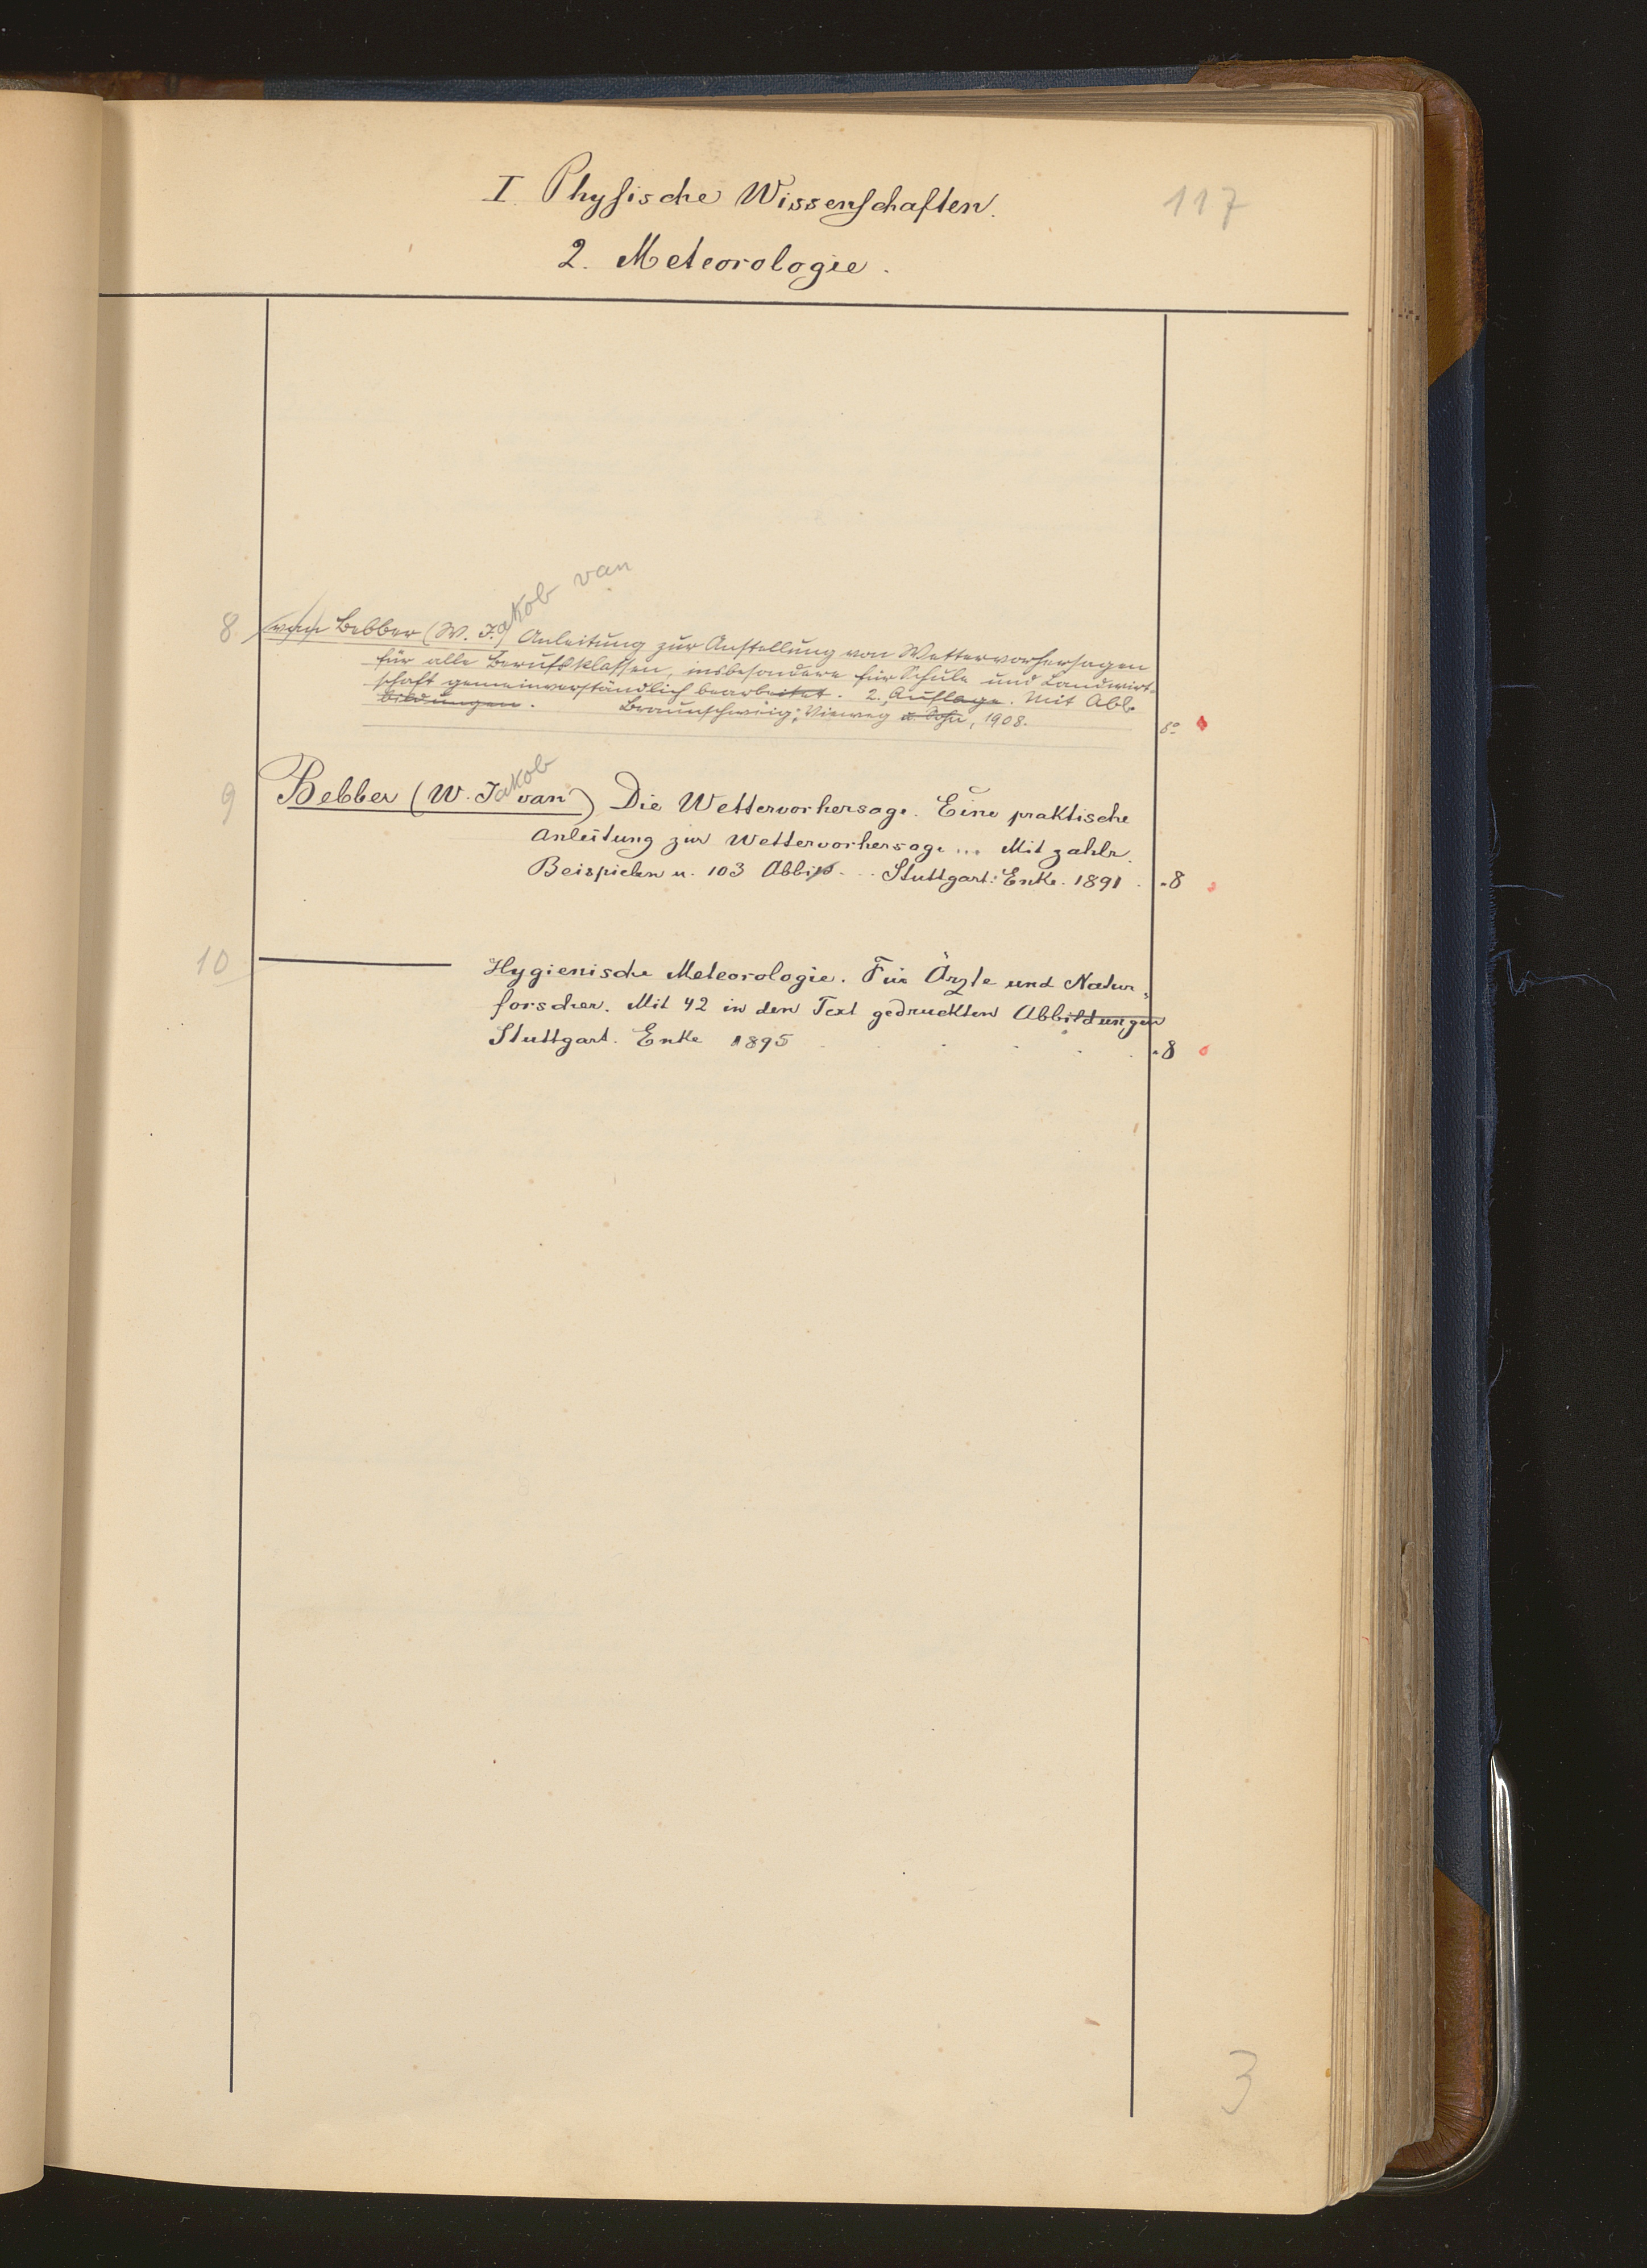 I. Physische Wissenschaften.
117
2. Meteorologie.
8 van Bebber (W. Jakob van) Anleitung zur Aufstellung von Wettervorhersagen
für alle Berufsklassen, insbesondere für Schule und Landwirt-
schaft gemeinverständlich bearbeitet. 2. Auflage. Mit Abb.
bildungen. Braunschweig: Vieweg u. Sohn, 1908. 8°
9 Bebber (W. Jakob van) Die Wettervorhersage. Eine praktische
Anleitung zur Wettervorhersage ... Mit zahlr.
Beispielen u. 103 Abb. Stuttgart: Enke. 1891. 8
10 Hygienische Meteorologie. Für Ärzte und Natur-
forscher. Mit 42 in den Text gedruckten Abbildungen
Stuttgart. Enke 1895 . . . . . 8
3